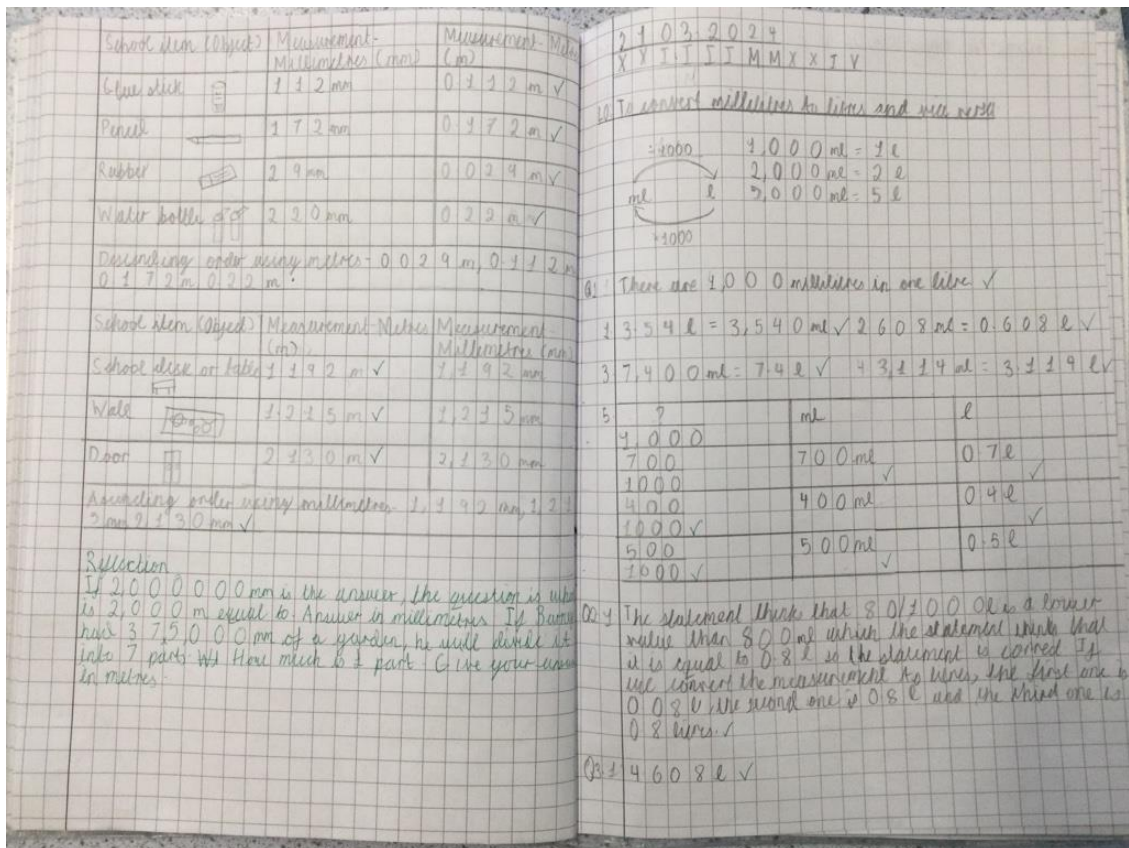 School item (Object) Measurement- Millimetres (mm) Measurement- Metres (m)
Glue stick 112mm 0.112m ✓
Pencil 172mm 0.172m ✓
Rubber 29mm 0.029m ✓
Water bottle 220mm 0.22m ✓
Descending order using metres- 0.029m, 0.112m
0.172m 0.22m.
School item (Object) Measurement-Metres (m) Measurement- Millimetres (mm)
School desk or table 1.192m ✓ 1,192mm
Wall 1.215m ✓ 1,215mm
Door 2.130m ✓ 2,130mm
Ascending order using millimetres- 1,192mm, 121
5mm 2130mm ✓
Reflection
If 2,000,000mm is the answer, the question is what
is 2,000m equal to. Answer in millimetres. If
had 375,000mm of a garden, he will divide it
into 7 parts. How much is 1 part. Give your answer
in metres.
21.03.2024
XXI.III.MMXXIV
LO To convert millilitres to litres and vice versa
÷1000 1,000ml = 1l
2,000ml = 2l
ml l 5,000ml = 5l
×1000
Q1 There are 1,000 millilitres in one litre ✓
1 3.54l = 3,540ml ✓ 2 608ml = 0.608l ✓
3 7,400ml = 7.4l ✓ 4 3,114ml = 3.114l ✓
5 ? ml l
1,000
700 700ml ✓ 0.7l ✓
1000
400 400ml 0.4l ✓
1000 ✓
500 500ml ✓ 0.5l
1000 ✓
Q2.1 The statement thinks that 80/1000l is a lower
value than 800ml which the statement thinks that
it is equal to 0.8l so the statement is correct. If
we convert the measurement to litres, the first one is
0.08l, the second one is 0.8l and the third one is
0.8 litres. ✓
Q3.1 4.608l ✓